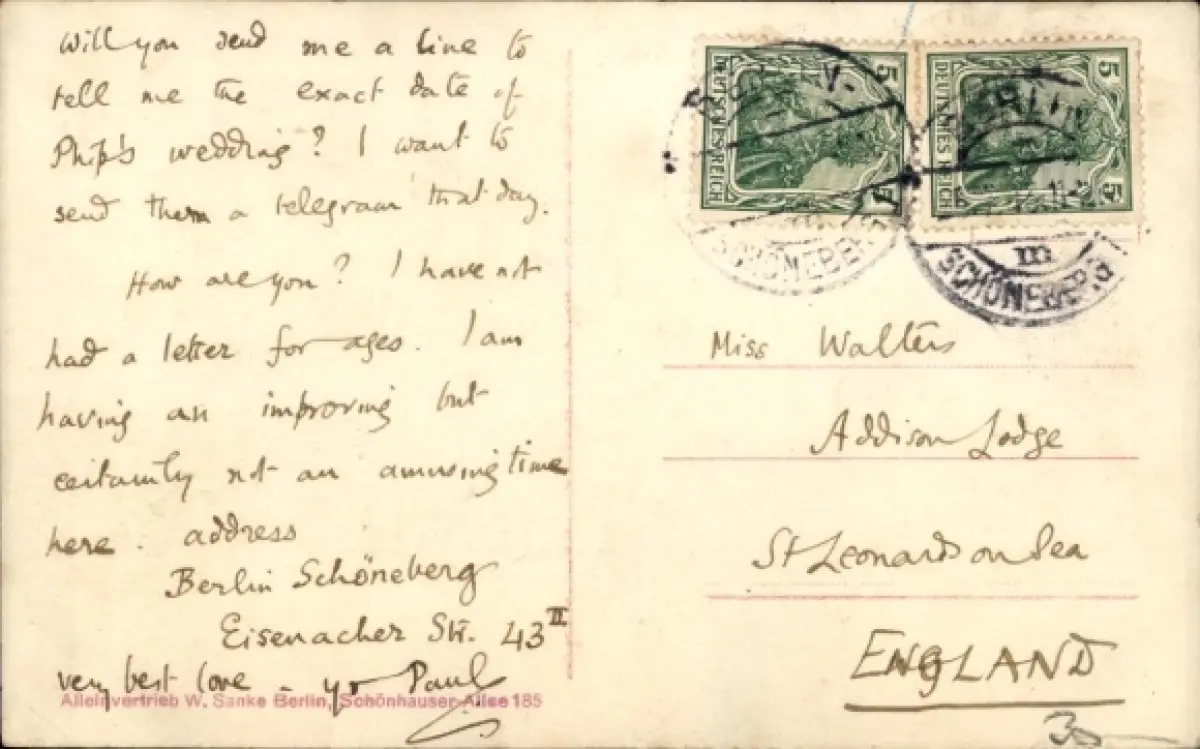 Will you send me a line to
tell me the exact date of
Phip's wedding? I want to
send them a telegram that day.
How are you? I have not
had a letter for ages. I am
having an improving but
certainly not an amusing time
here. address
Berlin Schöneberg
Eisenacher Str. 43 II
very best love - yr Paul
Alleinvertrieb W. Sanke Berlin, Schönhauser-Allee 185
5 DEUTSCHES REICH 5
5 DEUTSCHES REICH 5
SCHÖNEBERG
SCHÖNEBERG
m
Miss Walters
Addison Lodge
St Leonards on Sea
ENGLAND